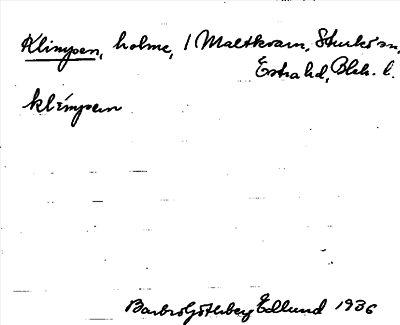 Klimpen, holme, / Maltkvarn, Sturkö sn,
Östra hd, Blek. l.
klímpen
Barbro Göterberg Edlund 1936